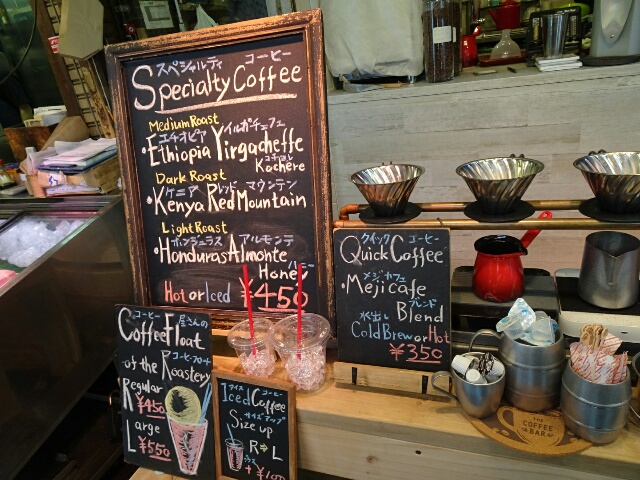 スペシャルティ コーヒー
Specialty Coffee
Medium Roast
エチオピア イルガチェフェ
・Ethiopia Yirgacheffe
コチャレ
Kochere
Dark Roast
ケニア レッド マウンテン
・Kenya Red Mountain
Light Roast
ホンジュラス アルモンテ
・Honduras Almonte
ハニー
Honey
Hot or Iced ¥450
クイック コーヒー
Quick Coffee
メジカフェ
・Meji cafe
ブレンド
Blend
水出し
Cold Brew or Hot
¥350
コーヒー屋さんの
Coffee Float
コーヒーフロート
of the Roastery
Regular
R ¥450
Large
L ¥550
アイス コーヒー
Iced Coffee
サイズアップ
Size up
R⇨L
プラス
+¥100
THE
COFFEE
BAR